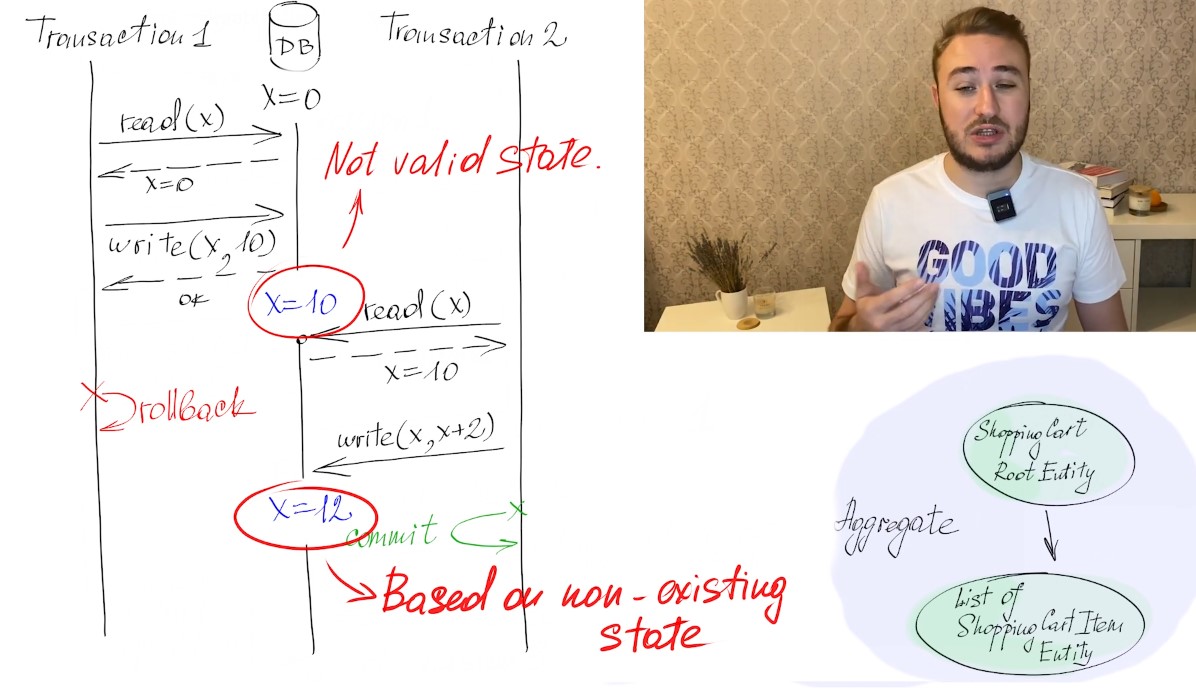 Transaction 1
DB
Transaction 2
x=0
read(x)
x=0
Not valid state.
write(x, 10)
ok
x=10
read(x)
x=10
rollback
write(x, x+2)
x=12
commit
Based on non-existing
state
GOOD
VIBES
Shopping Cart
Root Entity
Aggregate
List of
Shopping Cart Item
Entity